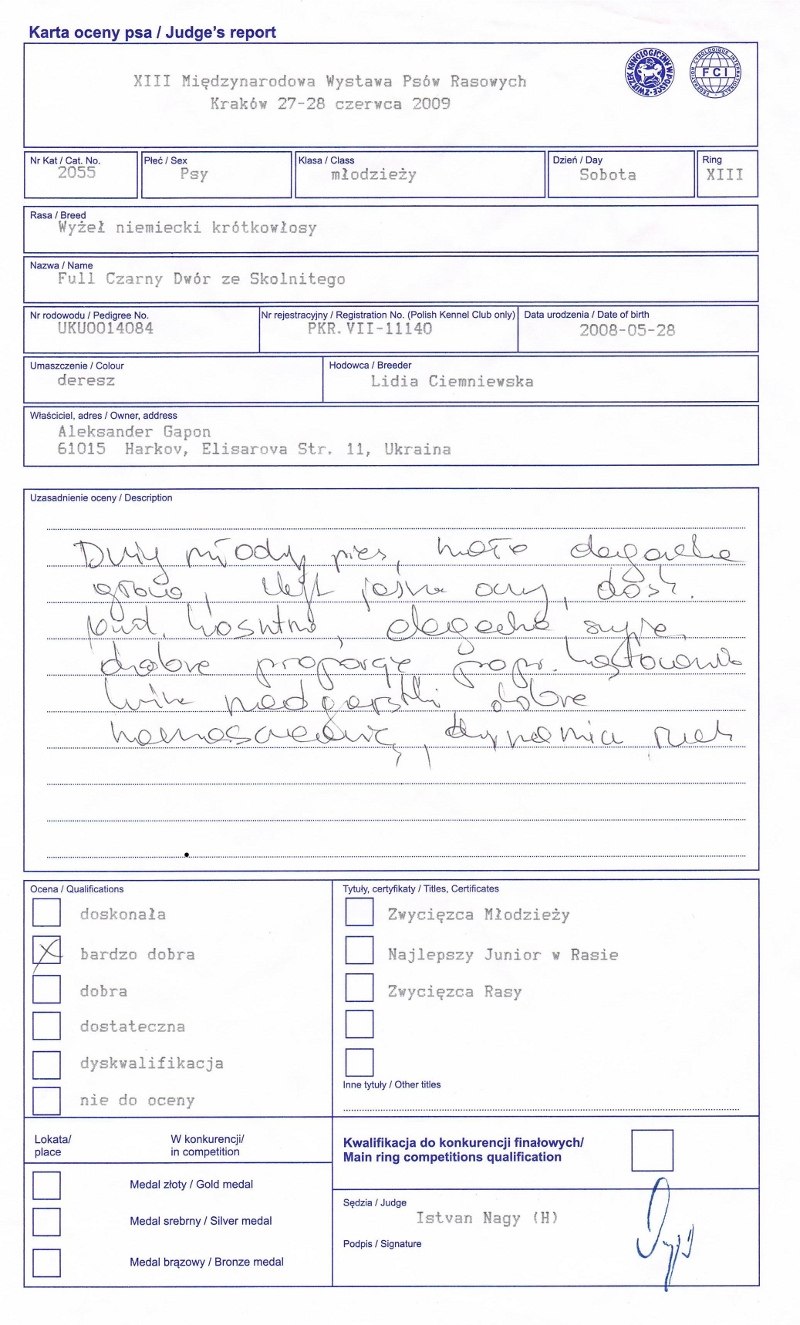 Karta oceny psa / Judge's report
XIII Międzynarodowa Wystawa Psów Rasowych
Kraków 27-28 czerwca 2009
ZWIĄZEK KYNOLOGICZNY W POLSCE
FCI
FEDERATION CYNOLOGIQUE INTERNATIONALE
Nr Kat / Cat. No. Płeć / Sex Klasa / Class Dzień / Day Ring
2055 Psy młodzieży Sobota XIII
Rasa / Breed
Wyżeł niemiecki krótkowłosy
Nazwa / Name
Full Czarny Dwór ze Skolnitego
Nr rodowodu / Pedigree No. Nr rejestracyjny / Registration No. (Polish Kennel Club only) Data urodzenia / Date of birth
UKU0014084 PKR.VII-11140 2008-05-28
Umaszczenie / Colour Hodowca / Breeder
deresz Lidia Ciemniewska
Właściciel, adres / Owner, address
Aleksander Gapon
61015 Harkov, Elisarova Str. 11, Ukraina
Uzasadnienie oceny / Description
Duży młody pies, mało elegancka
głowa, jasne oczy, dość
elegancka szyja,
dobre proporcje popr. kątowanie
nadgarstki dobre
dynamia ruch
Ocena / Qualifications Tytuły, certyfikaty / Titles, Certificates
doskonała Zwycięzca Młodzieży
X bardzo dobra Najlepszy Junior w Rasie
dobra Zwycięzca Rasy
dostateczna
dyskwalifikacja
Inne tytuły / Other titles
nie do oceny
Lokata/ W konkurencji/ Kwalifikacja do konkurencji finałowych/
place in competition Main ring competitions qualification
Medal złoty / Gold medal
Sędzia / Judge
Medal srebrny / Silver medal Istvan Nagy (H)
Podpis / Signature
Medal brązowy / Bronze medal